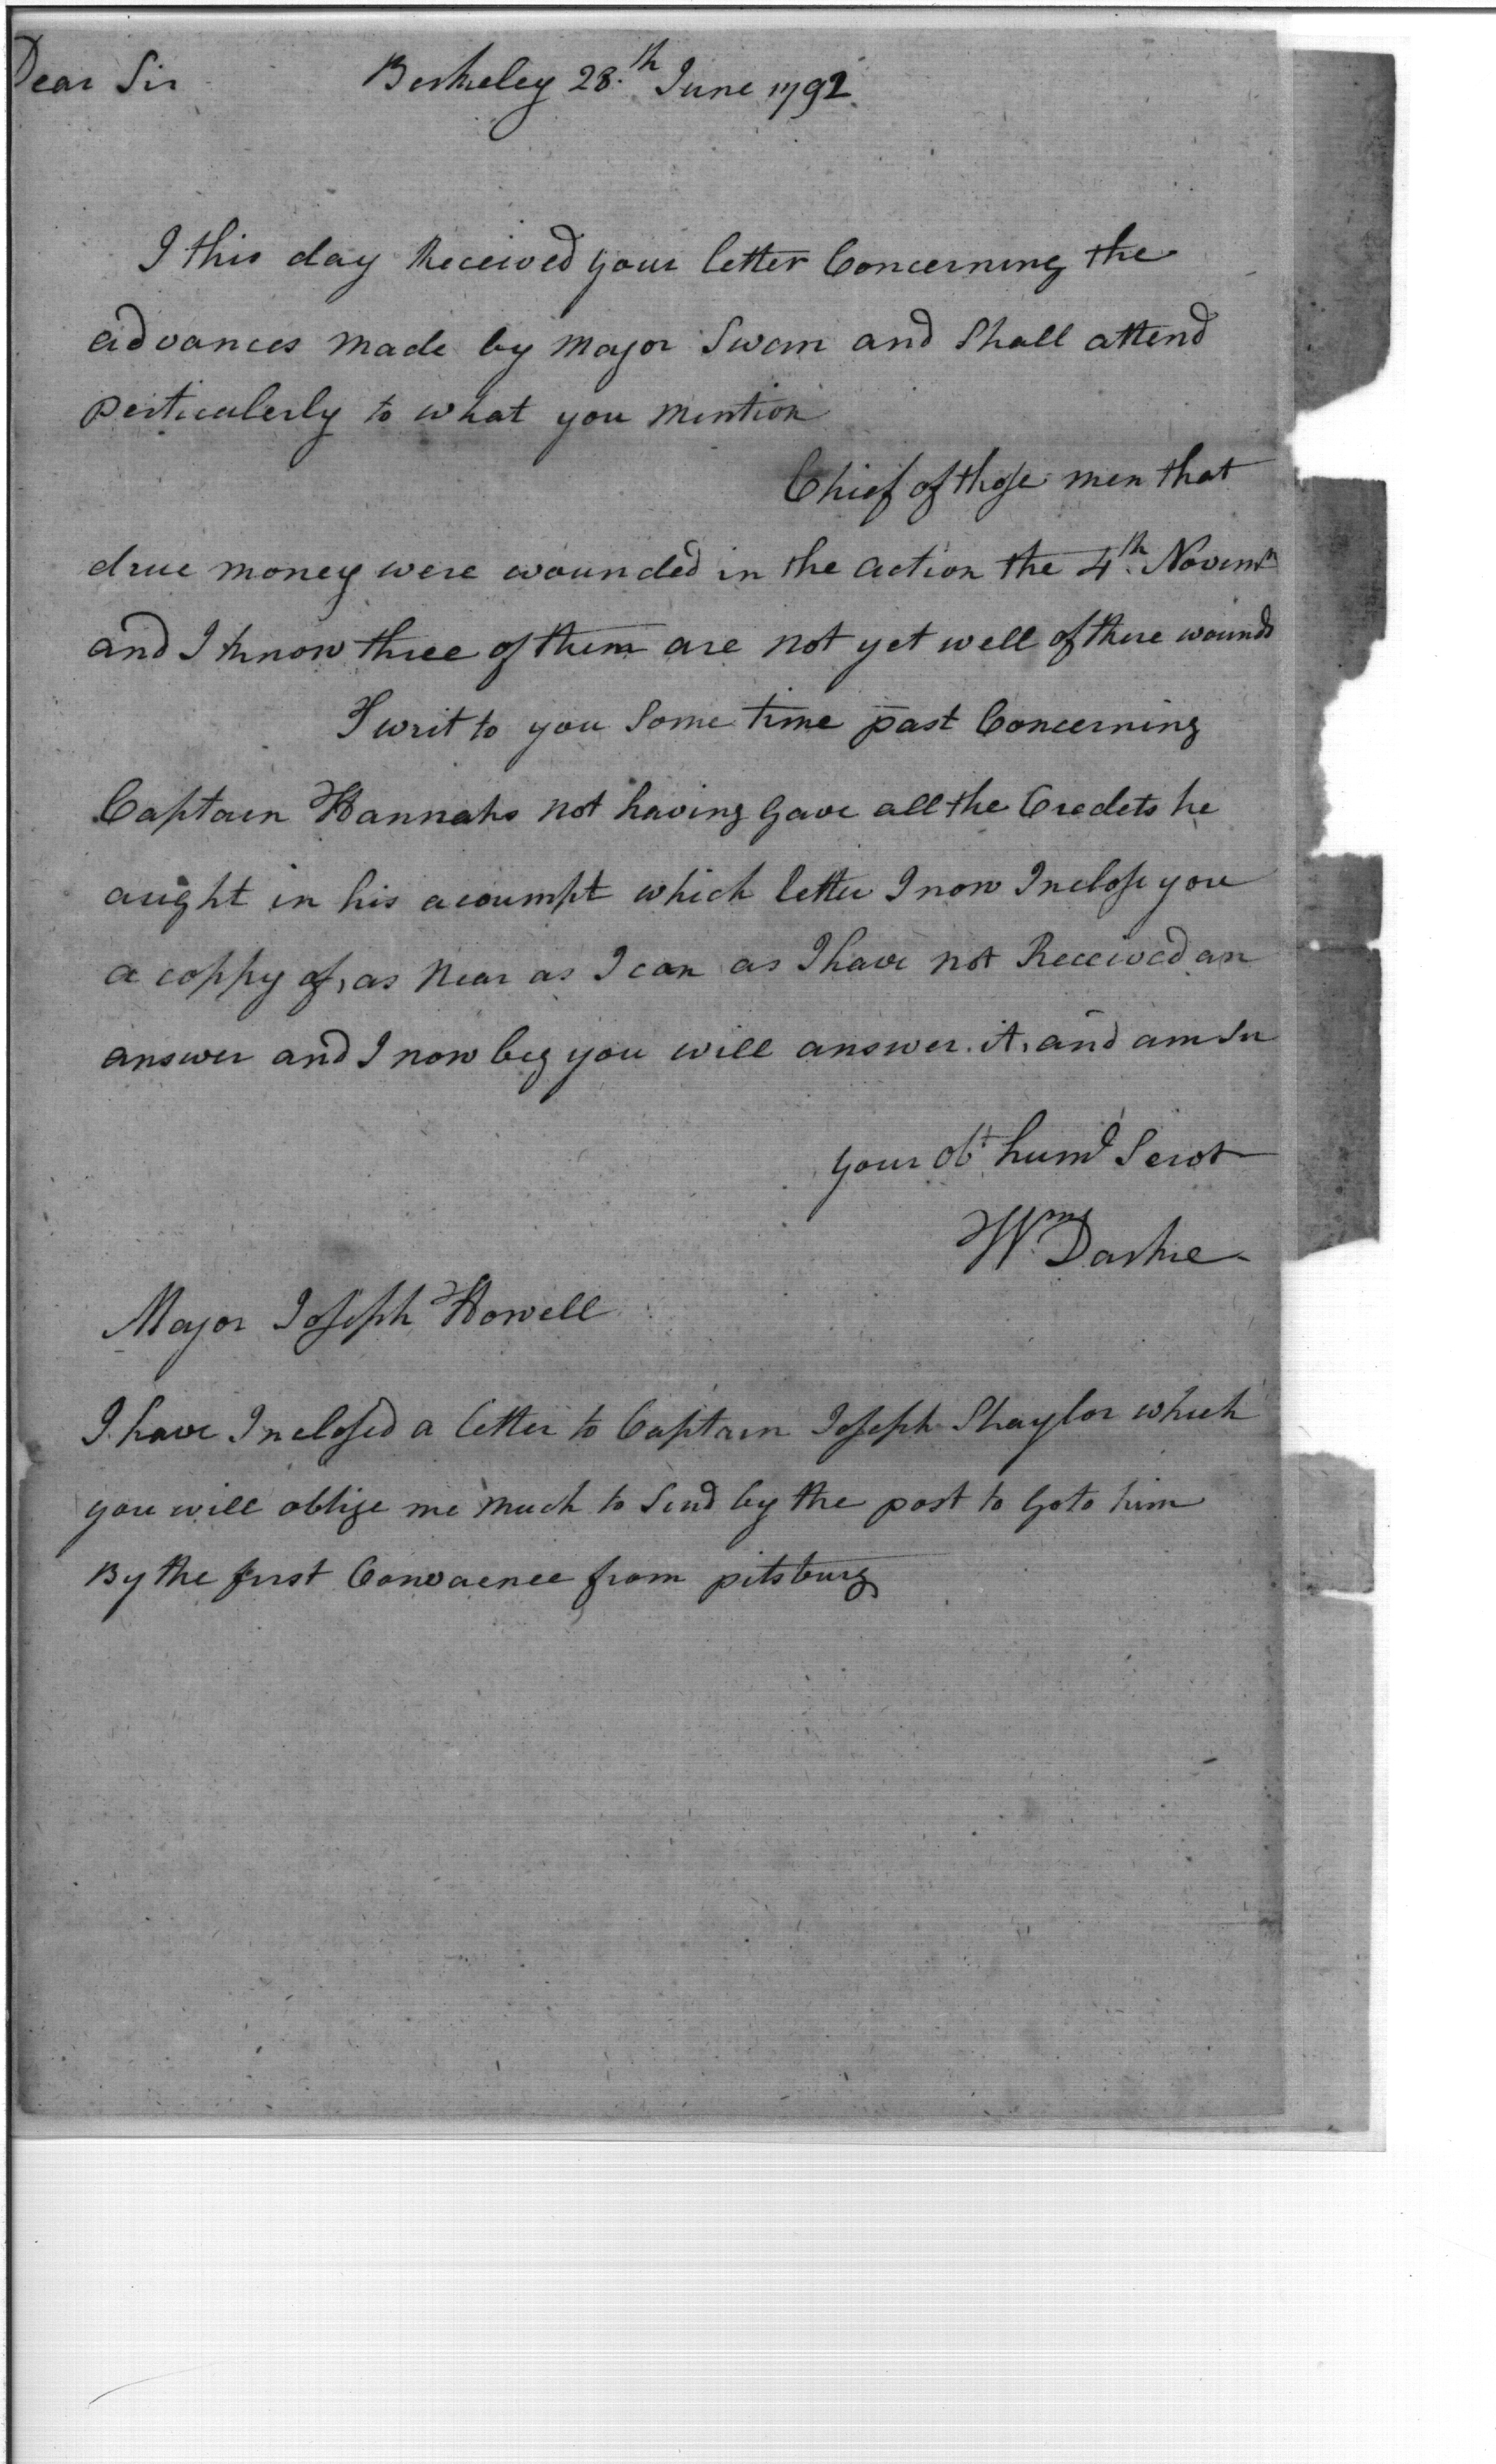 Dear Sir Berkeley 28.th June 1792
I this day Received your letter Concerning the
advances made by Major Swan and Shall attend
perticulerly to what you mention
Chief of those men that
drue money were wounded in the action the 4th. Novembr
and I know three of them are not yet well of there wounds
I writ to you Some time past Concerning
Captain Hannahs not having gave all the Credets he
aught in his acoumpt which letter I now Inclose you
a coppy of, as near as I can as I have not Received an
answer and I now beg you will answer it, and am Sir
your obt humd Servt
Wm Darke
Major Joseph Howell
I have Inclosed a letter to Captain Joseph Shaylor which
you will oblige me much to Send by the post to go to him
By the first Convaence from pitsburg